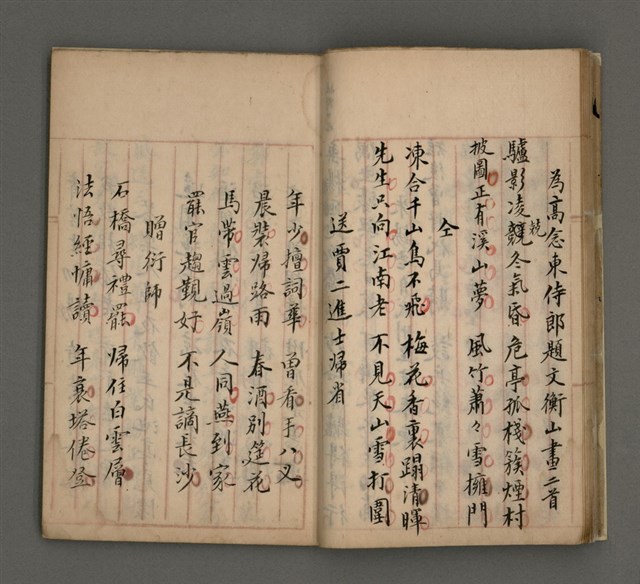 為高念東侍郎題文衡山畫二首
驢影凌競冬氣昏 危亭孤棧簇煙村
兢
披圖正有溪山夢 風竹蕭々雪擁門
仝
凍合千山鳥不飛 梅花香裏蹋清暉
先生只向江南老 不見天山雪打圍
送賈二進士歸省
年少擅詞華 曾看手八叉
晨裝歸路雨 春酒別筵花
馬帶雲過嶺 人同燕到家
罷官趨覲好 不是謫長沙
贈衍師
石橋尋禮罷 歸住白雲層
法悟經慵讀 年衰塔倦登